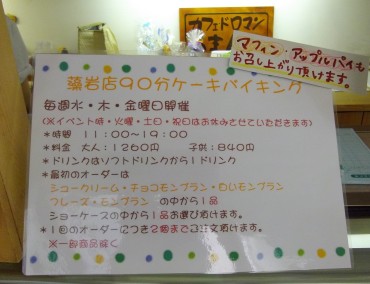 カフェ・ド・ロマン
マフィン・アップルパイも
お召し上がり頂けます。
藻岩店90分ケーキバイキング
毎週水・木・金曜日開催
(※イベント時・火曜・土日・祝日はお休みさせていただきます)
*時間 11:00~19:00
*料金 大人:1260円 子供:840円
*ドリンクはソフトドリンクから1ドリンク
*最初のオーダーは
シュークリーム・チョコモンブラン・白いモンブラン
フレーズ・モンブラン の中から1品
ショーケースの中から1品お選び頂けます。
*1回のオーダーにつき2個までご注文頂けます。
※一部商品除く